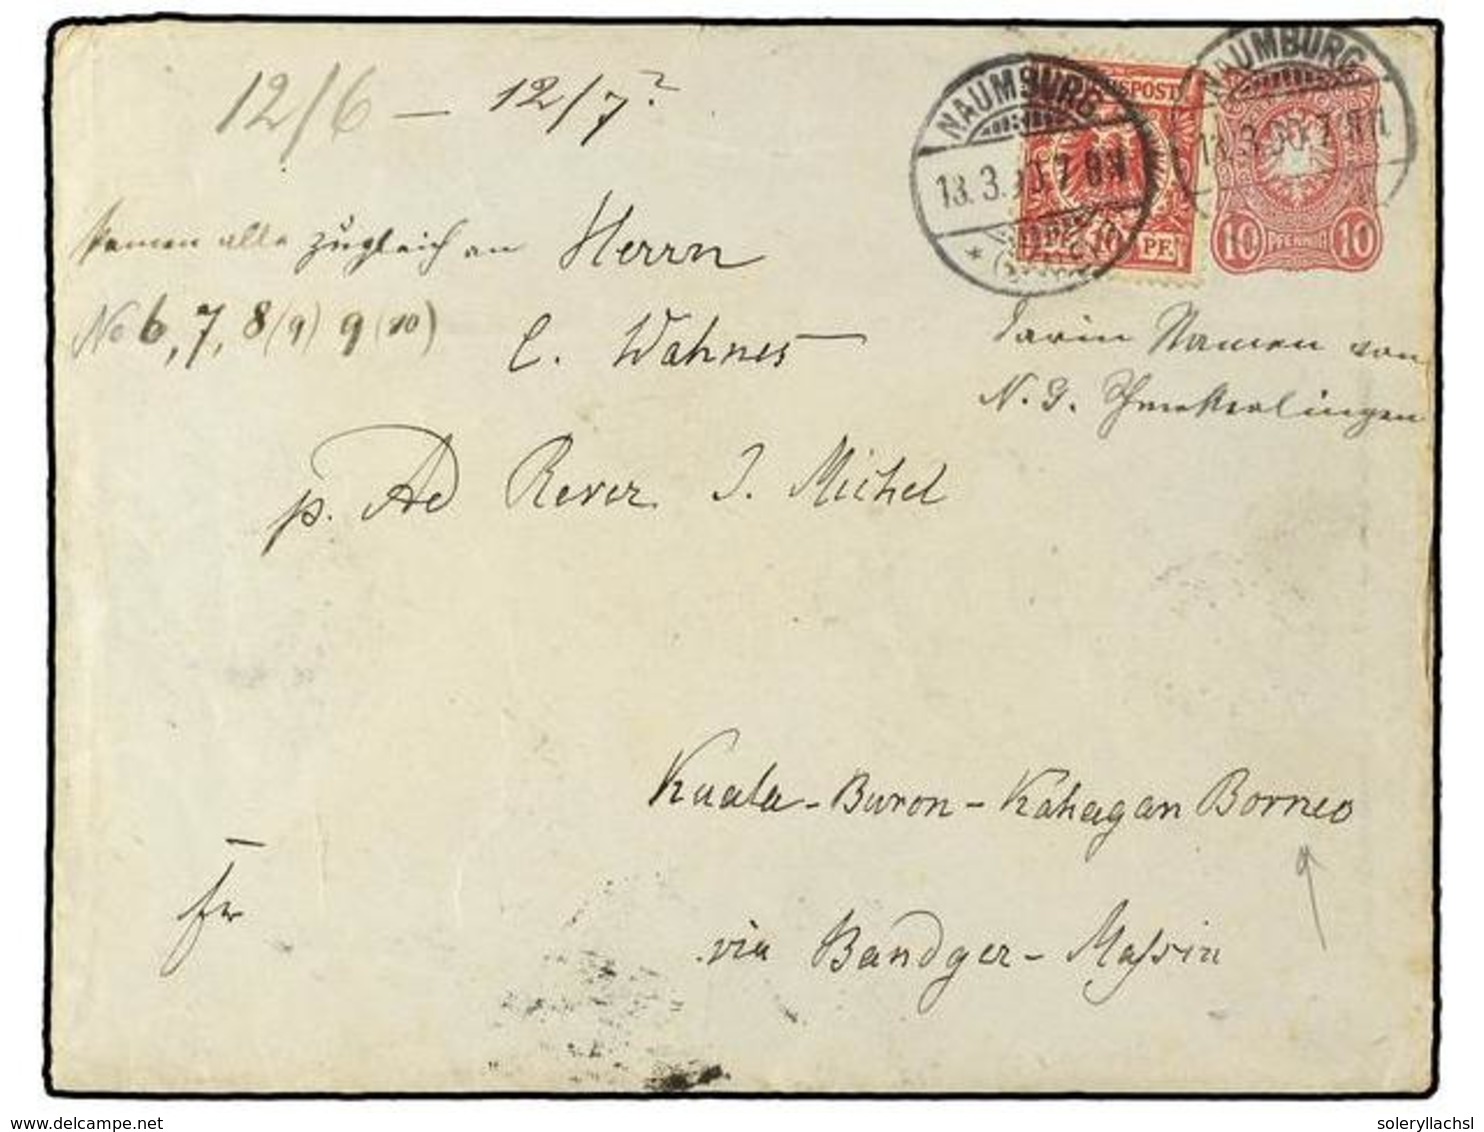 12/6 — 12/7?
NAUMBURG
13.3.90.7 8N
REICHSPOST
10 PF
NAUMBURG
13.3.90.7
10 PFENNIG 10
kamen alle zugleich an
Herrn
No 6, 7, 8 (9) 9 (10)
C. Wahnes
Darin Namen von
N. G. Schmetterlingen
p. Ad Rever. J. Michel
Kuala-Buron-Kahagan Borneo
9
fr
via Bandger-Massin
www.delcampe.net
soleryllachsl